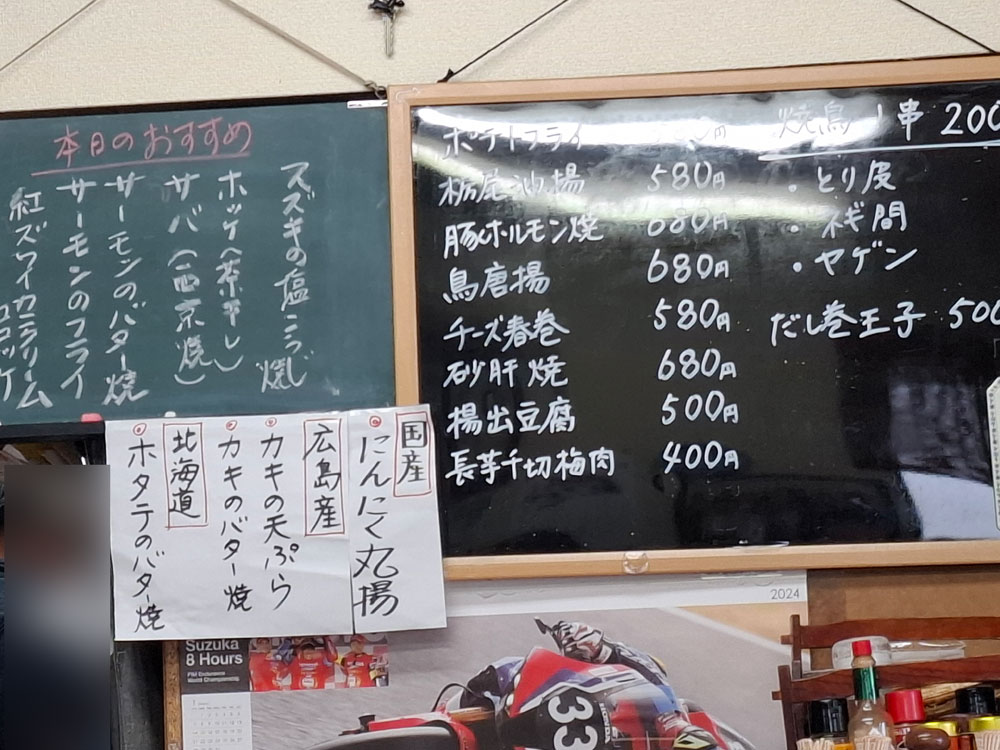 本日のおすすめ
スズキの塩こうじ焼
ホッケ(茶干し)
サバ(西京焼)
サーモンのバター焼
サーモンのフライ
紅ズワイカニクリームコロッケ
ポテトフライ
栃尾油揚 580円
豚ホルモン焼 680円
鳥唐揚 680円
チーズ春巻 580円
砂肝焼 680円
揚出豆腐 500円
長芋千切梅肉 400円
焼鳥 1串 200
・とり皮
・ネギ間
・ヤゲン
だし巻玉子 500
国産
にんにく丸揚
広島産
カキの天ぷら
カキのバター焼
北海道
ホタテのバター焼
2024
Suzuka
8 Hours
FIM Endurance
World Championship
33